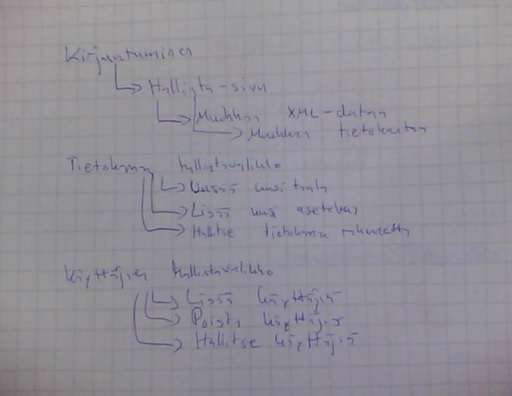 Kirjautuminen
Hallinta-sivu
Muokkaa XML-dataa
Muokkaa tietokantaa
Tietokannan hallintavalikko
Lisää uusi
Hallitse tietokannan rakennetta
Käyttäjien hallintavalikko
Lisää käyttäjiä
Poista käyttäjiä
Hallitse käyttäjiä